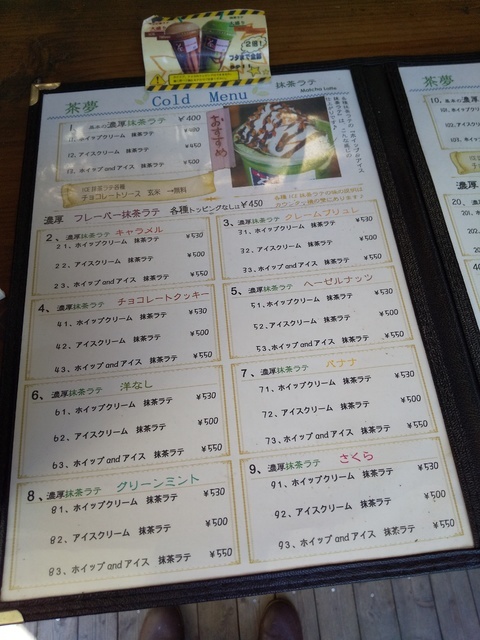 2倍!
茶夢
Cold Menu
抹茶ラテ
Matcha Latte
おすすめ
濃厚抹茶ラテ ¥400
ホイップクリーム 抹茶ラテ
12、アイスクリーム 抹茶ラテ ¥450
ホイップ and アイス 抹茶ラテ ¥500
チョコレートソース 玄米 →無料
濃厚 フレーバー抹茶ラテ 各種トッピングなしは¥450
2、濃厚抹茶ラテ キャラメル
21、ホイップクリーム 抹茶ラテ ¥530
22、アイスクリーム 抹茶ラテ ¥500
23、ホイップ and アイス 抹茶ラテ ¥550
3、濃厚抹茶ラテ クレームブリュレ
31、ホイップクリーム 抹茶ラテ ¥530
32、アイスクリーム 抹茶ラテ ¥500
33、ホイップ and アイス 抹茶ラテ ¥550
4、濃厚抹茶ラテ チョコレートクッキー
41、ホイップクリーム 抹茶ラテ ¥530
42、アイスクリーム 抹茶ラテ ¥500
43、ホイップ and アイス 抹茶ラテ ¥550
5、濃厚抹茶ラテ ヘーゼルナッツ
51、ホイップクリーム 抹茶ラテ ¥530
52、アイスクリーム 抹茶ラテ ¥500
53、ホイップ and アイス 抹茶ラテ ¥550
6、濃厚抹茶ラテ 洋なし
61、ホイップクリーム 抹茶ラテ ¥530
62、アイスクリーム 抹茶ラテ ¥500
63、ホイップ and アイス 抹茶ラテ ¥550
7、濃厚抹茶ラテ バナナ
71、ホイップクリーム 抹茶ラテ ¥530
72、アイスクリーム 抹茶ラテ ¥500
73、ホイップ and アイス 抹茶ラテ ¥550
8、濃厚抹茶ラテ グリーンミント
81、ホイップクリーム 抹茶ラテ ¥530
82、アイスクリーム 抹茶ラテ ¥500
83、ホイップ and アイス 抹茶ラテ ¥550
9、濃厚抹茶ラテ さくら
91、ホイップクリーム 抹茶ラテ ¥530
92、アイスクリーム 抹茶ラテ ¥500
93、ホイップ and アイス 抹茶ラテ ¥550
茶夢
濃厚
20、